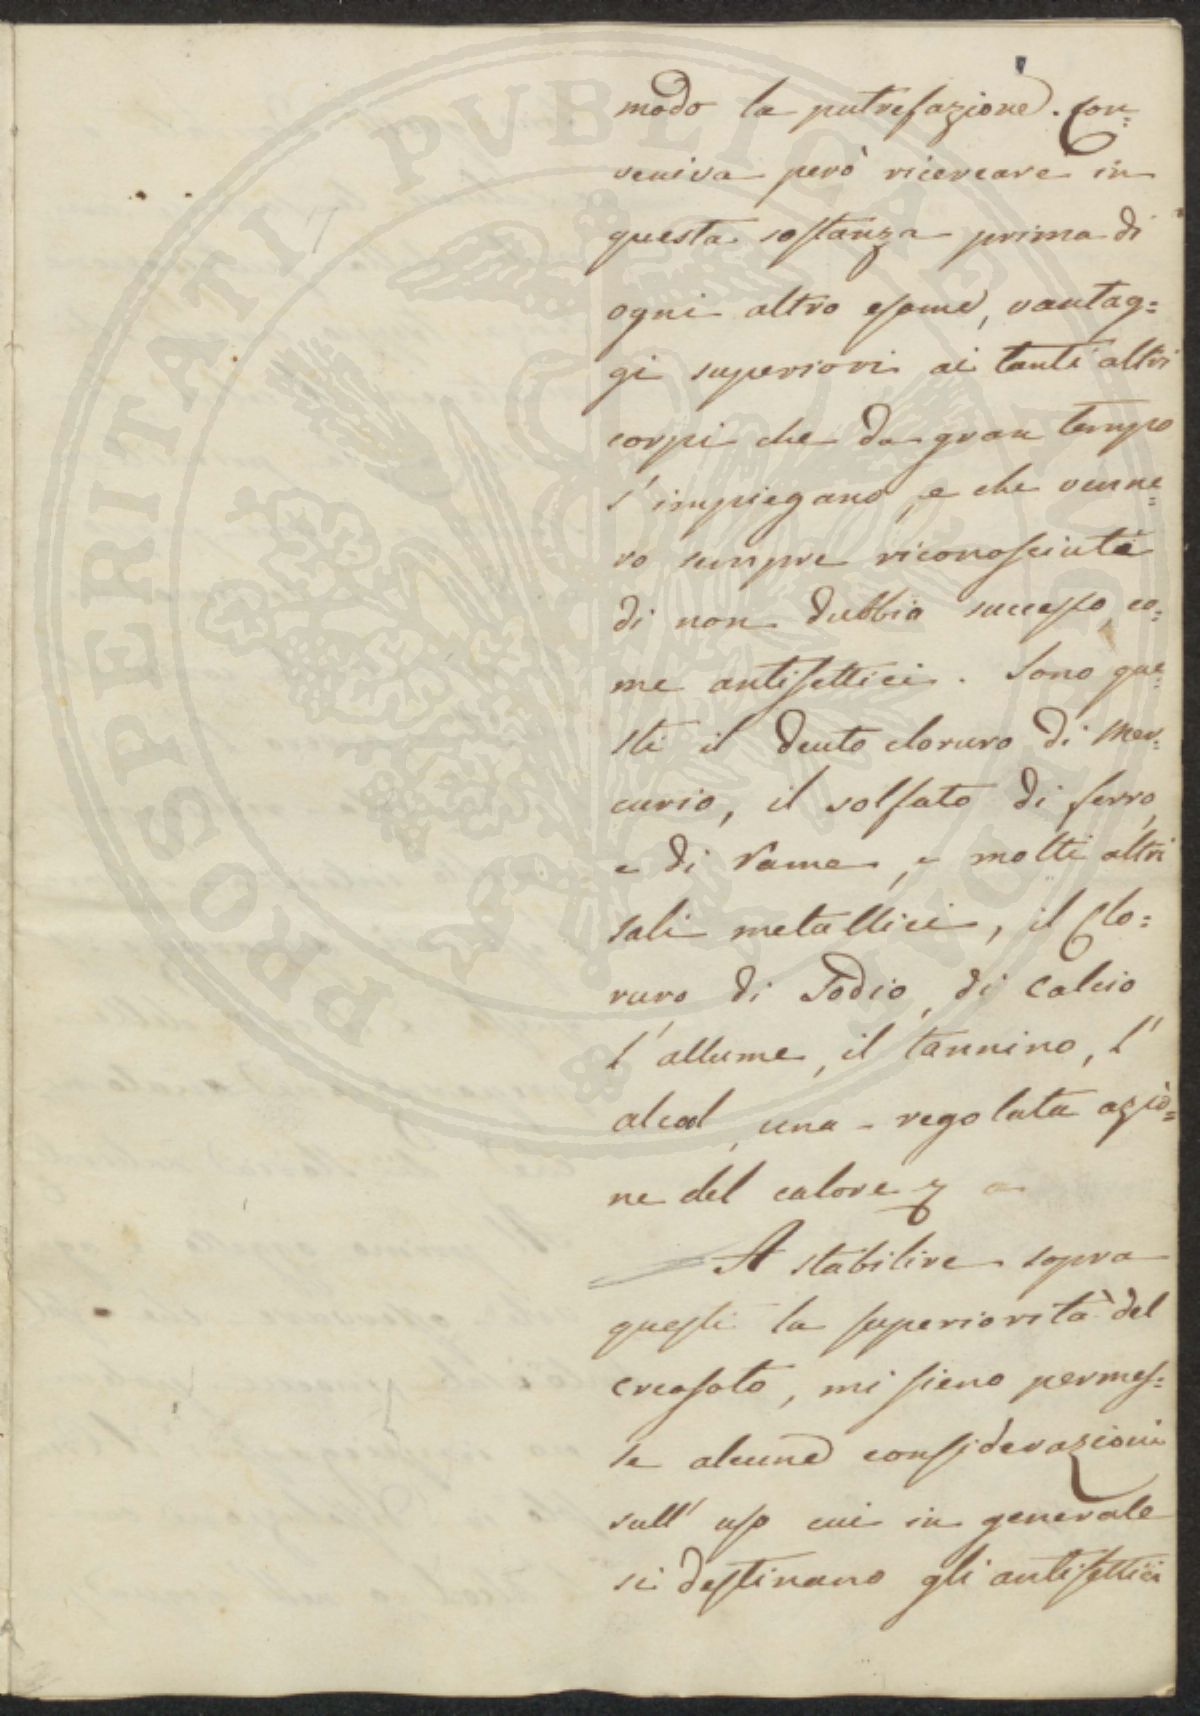 modo la putrefazione. Con=
veniva però ricercare in
questa sostanza prima di
ogni altro esame, vantag=
gi superiori ai tanti altri
corpi che da gran tempo
s'impiegano, e che venne=
ro sempre riconosciuti
di non dubbio successo, co=
me antisettici. Sono que=
sti il deuto cloruro di Mer=
curio, il solfato di ferro,
e di Rame, e molti altri
sali metallici, il Clo=
ruro di Sodio, di Calcio
l'allume, il tannino, l'
alcool, una regolata azio=
ne del calore
A stabilire sopra
questi la superiorità del
creosoto, mi sieno permes=
se alcune considerazioni
sull'uso cui in generale
si destinano gli antisettici
PROSPERITATI PUBLICAE AUGENDAE